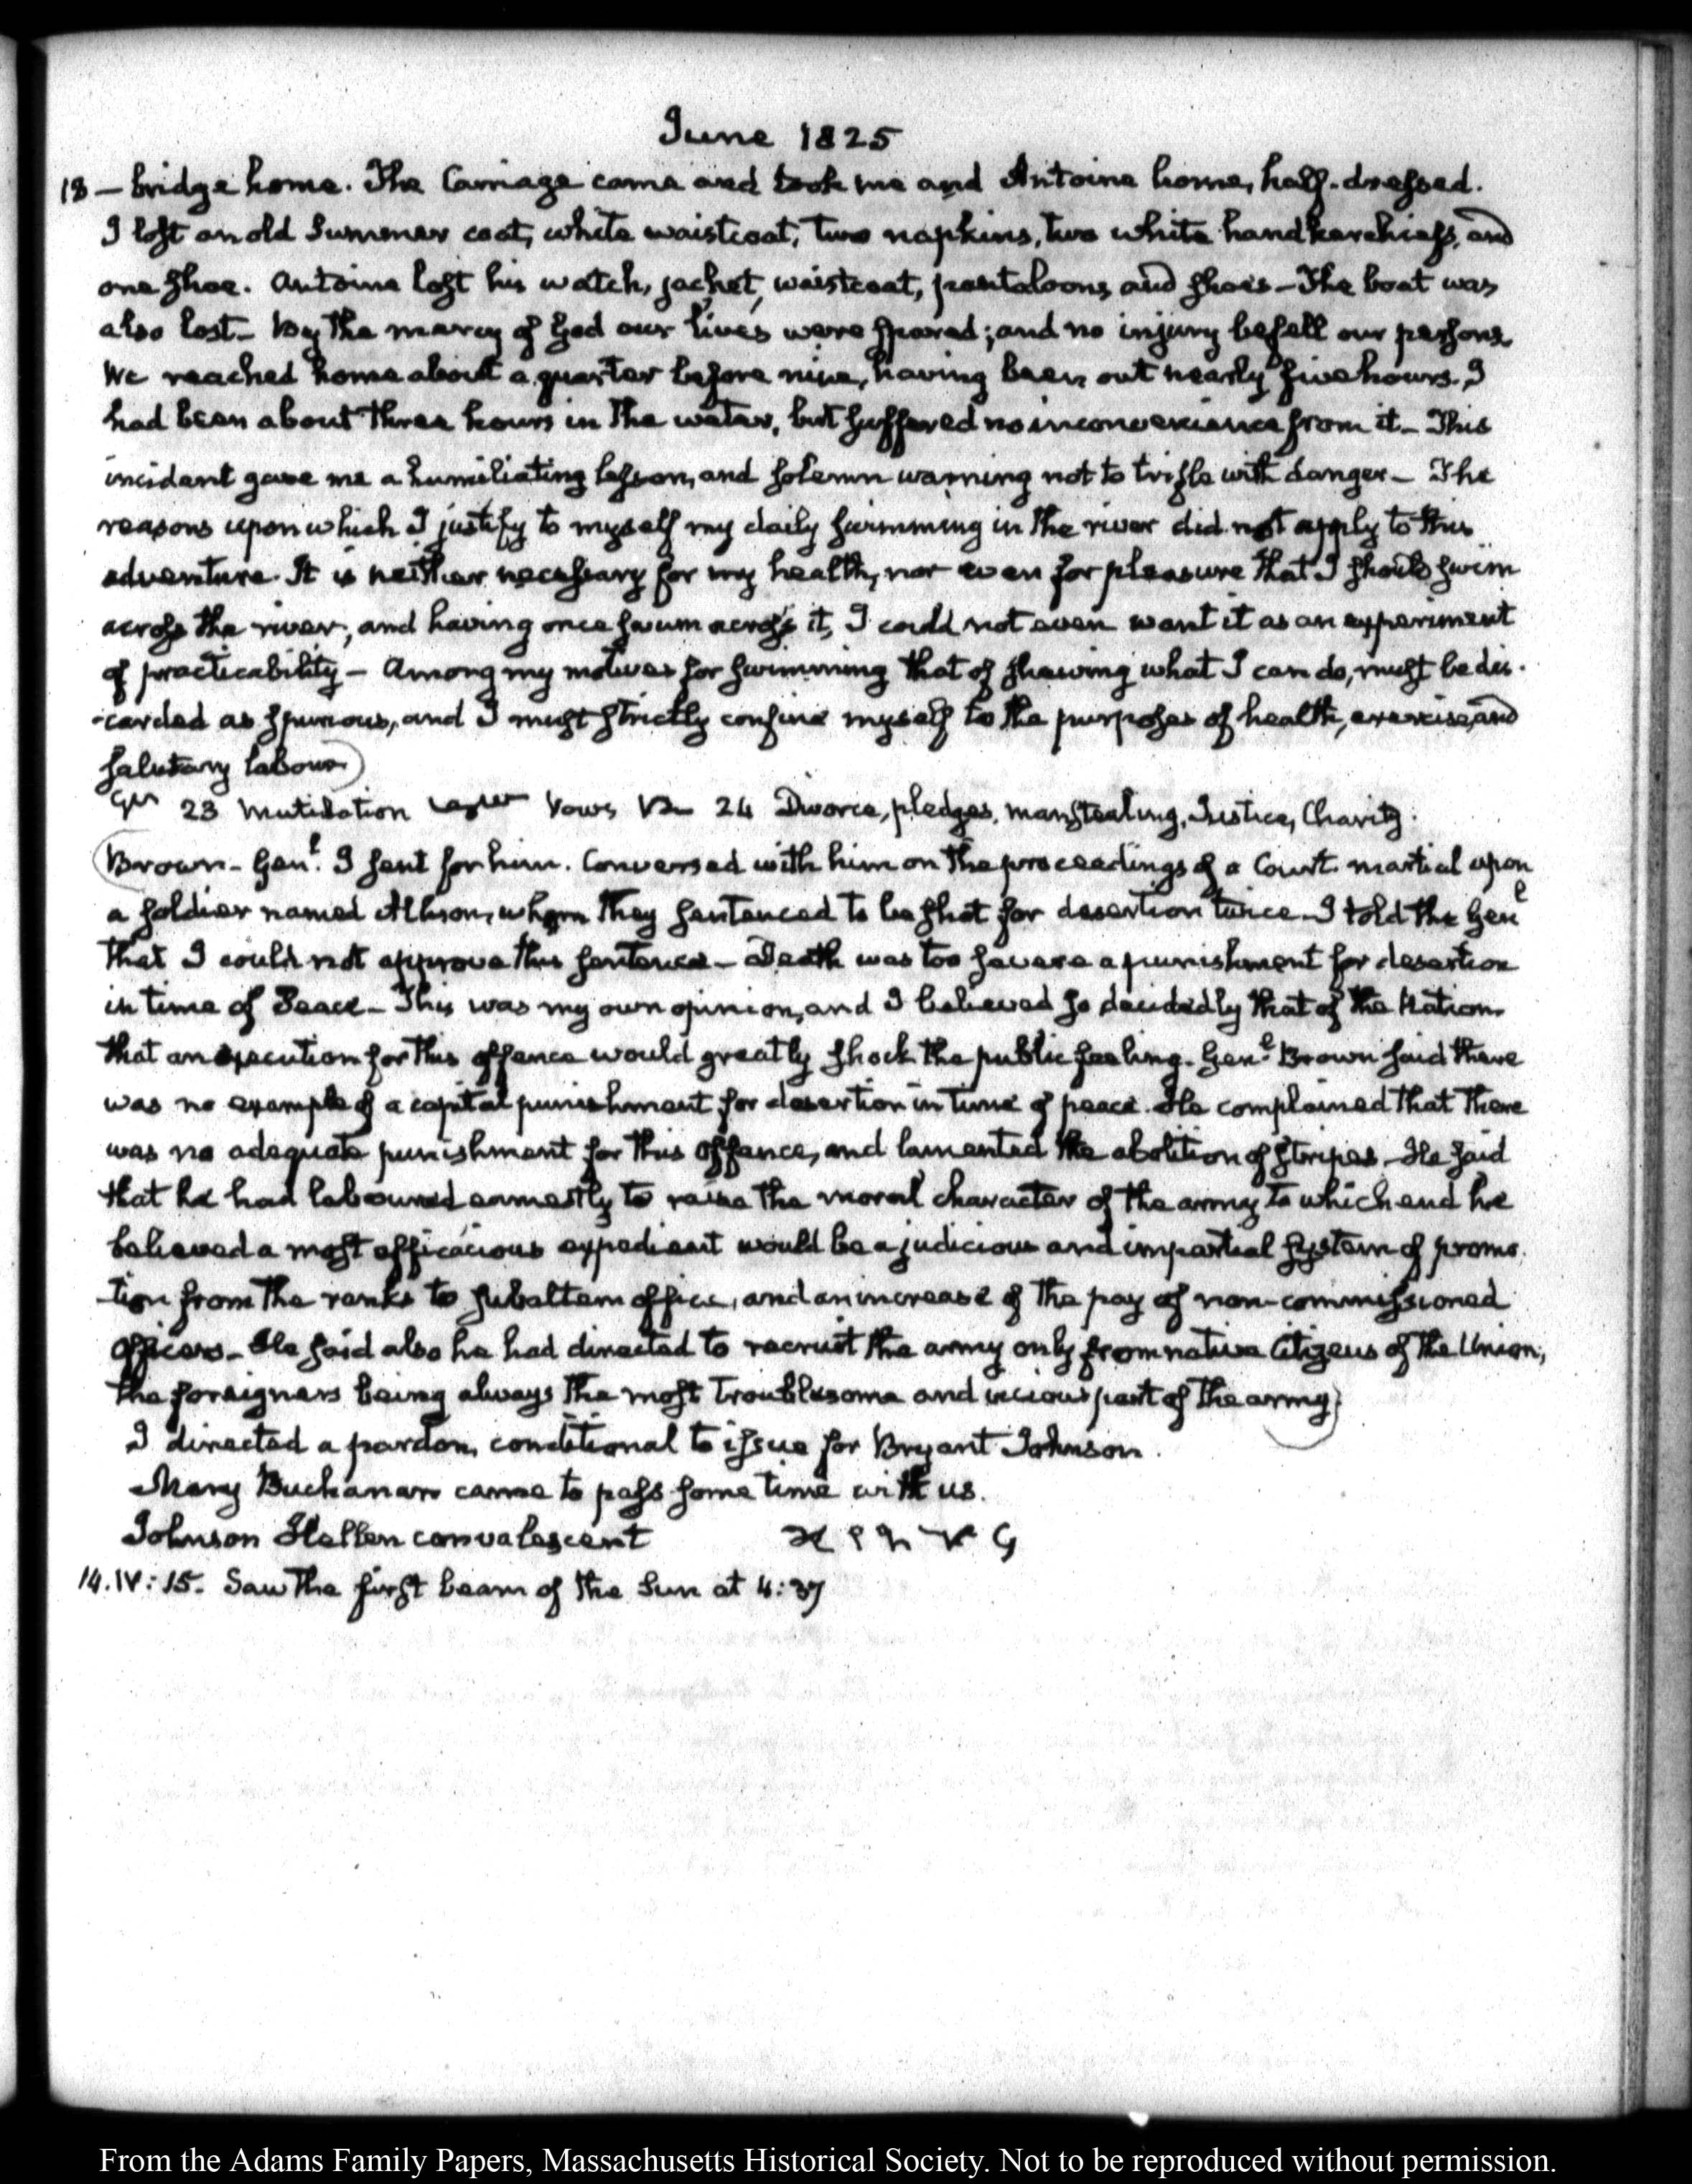 June 1825
13 — bridge home. The Carriage came and took me and Antoine home, half-dressed.
I lost an old Summer coat, white waistcoat, two napkins, two white handkerchiefs, and
one shoe. Antoine lost his watch, jacket, waistcoat, pantaloons and shoes – The boat was
also lost – By the mercy of God our lives were spared; and no injury befell our persons.
We reached home about a quarter before nine, having been out nearly five hours. I
had been about three hours in the water, but suffered no inconvenience from it – This
incident gave me a humiliating lesson, and solemn warning not to trifle with danger – The
reasons upon which I justify to myself my daily swimming in the river did not apply to this
adventure. It is neither necessary for my health, nor even for pleasure that I should swim
across the river, and having once swum across it, I could not even want it as an experiment
of practicability – Among my motives for swimming that of shewing what I can do, must be dis-
-carded as spurious, and I must strictly confine myself to the purposes of health, exercise, and
salutary labour)
23 Mutilation Vows 24 Divorce, pledges, manstealing, Justice, Charity.
(Brown – Genl. I sent for him. Conversed with him on the proceedings of a Court martial upon
a soldier named Allison, whom they sentenced to be shot for desertion twice – I told the Genl
that I could not approve this sentence – Death was too severe a punishment for desertion
in time of Peace – This was my own opinion, and I believed so decidedly that of the Nation
that an execution for this offence would greatly shock the public feeling – Genl Brown said there
was no example of a capital punishment for desertion in time of peace. He complained that there
was no adequate punishment for this offence, and lamented the abolition of stripes – He said
that he had laboured earnestly to raise the moral character of the army to which end he
believed a most efficacious expedient would be a judicious and impartial system of promo-
-tion from the ranks to subaltern office, and an increase of the pay of non-commissioned
officers – He said also he had directed to recruit the army only from native Citizens of the Union;
the foreigners being always the most troublesome and vicious part of the army)
I directed a pardon, conditional to issue for Bryant Johnson.
Mary Buchanan came to pass some time with us.
Johnson Hellen convalescent
14. IV: 15. Saw the first beam of the Sun at 4:37
From the Adams Family Papers, Massachusetts Historical Society. Not to be reproduced without permission.